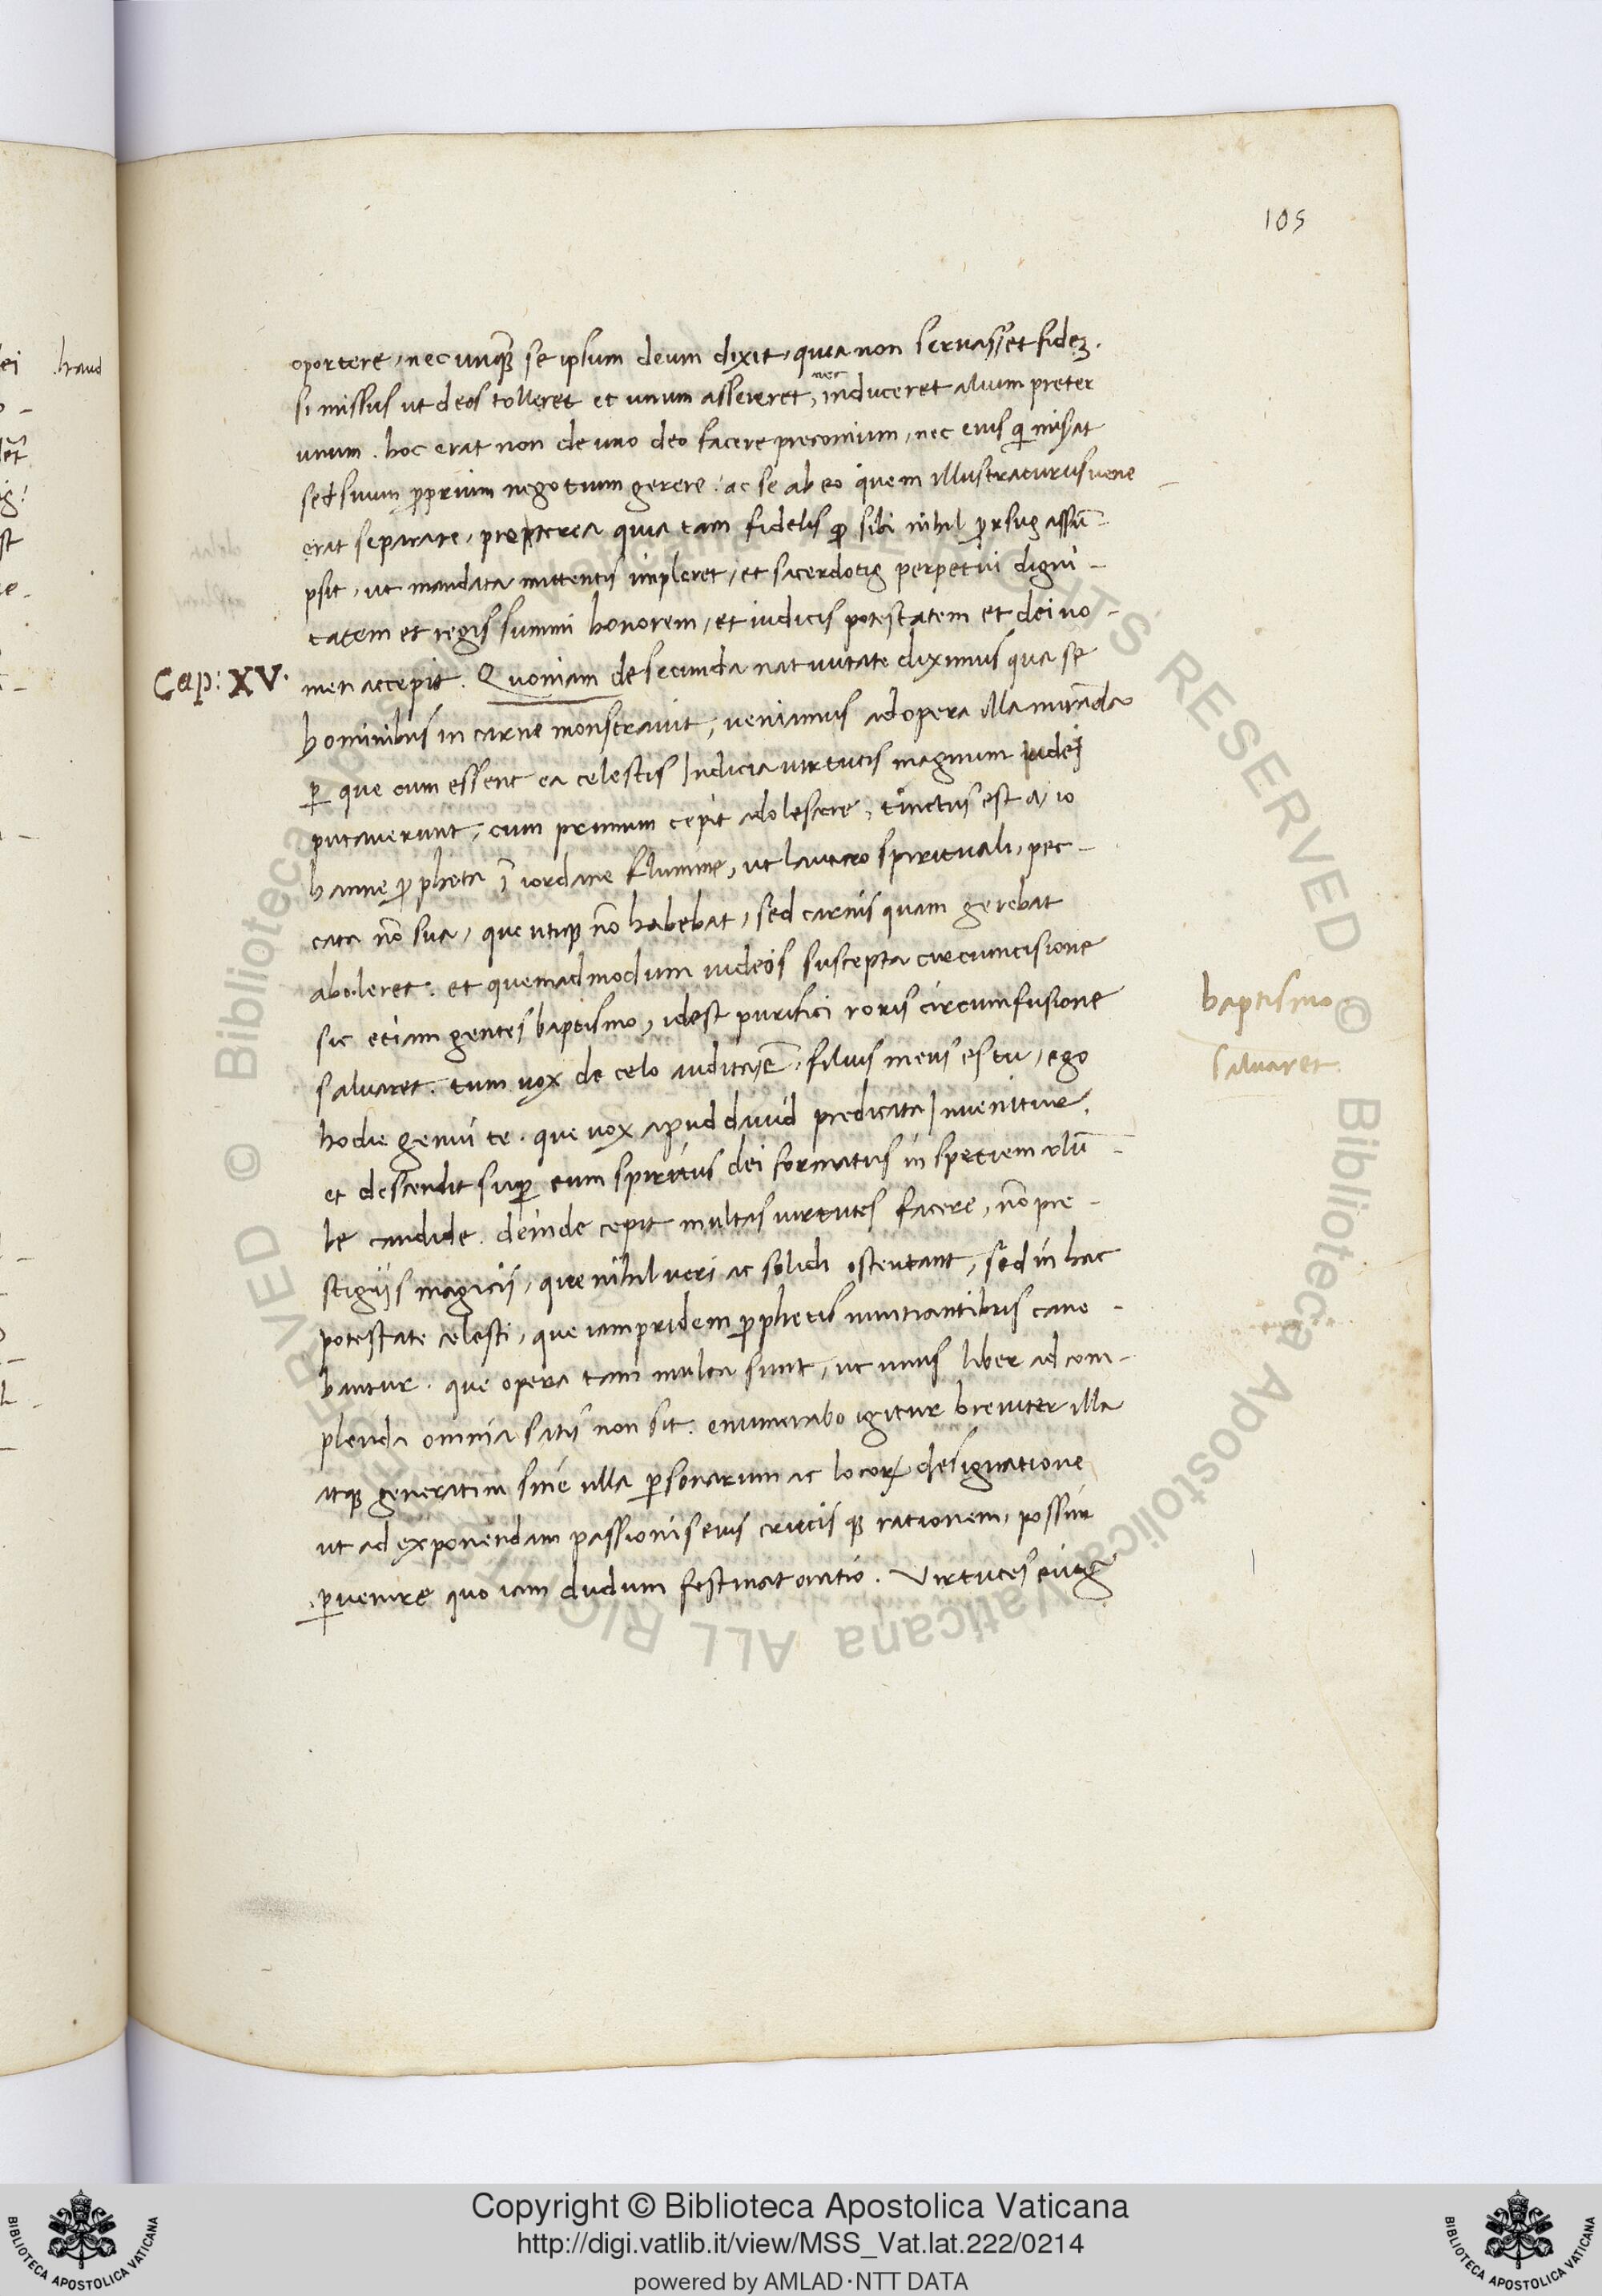 105
oportere, nec unqȝ se ipsum deum dixit, quia non servasset fideʒ.
si missus ut deos tolleret et unum assereret, nec induceret alium preter
unum. hoc erat non de uno deo facere preconium, nec eius qi misat
sed suum proprium negotium gerere. ac se ab eo quem illustraturus vene
erat separare, propterea quia tam fidelis sibi nihil assū-
psit, ut mandata mittentis impleret, et sacerdotis perpetui digni-
tatem et regis summi honorem, et iudicis potestatem et dei no-
Cap: XV.
men accepit. Quoniam de secunda nativitate diximus qua se
hominibus in carne monstravit, veniamus ad opera illa mirāda
p que cum essent ea celestis Indicia virtutis magnum iudei
putaverunt, cum primum cepit adolescere, tinctus est a, io
hanne propheta ī iordane flumine, ut lavacro spirituali, pec-
cata nō sua, que utiqȝ nō habebat, sed carnis quam gerebat
aboleret. et quemadmodum iudeos suscepta circumcisione
sic etiam gentes baptismo, idest purifici roris circumfusione
baptismo
salvaret. tum vox de celo audita ē, filius meus es tu, ego
salvaret.
hodie genui te. que vox apud david predicata Invenitur.
et descendit sup eum spiritus dei formatus in speciem colū-
be candide. deinde cepit multas virtutes facere, nō pre-
stigiis magicis, que nihil veri ac solidi ostentant, sed in hac
potestate celesti, que iampridem prophetis nuntiantibus cane-
bantur. que opera tam multa sunt, ut unus liber ad com-
plenda omnia satis non sit. enumerabo igitur breviter illa
atqȝ generatim sine ulla psonarum ac locorꝝ designatione
ut ad exponendam passionis eius crucis qȝ rationem, possim
pvenire quo iam dudum festinat oratio. Virtutes
haud
Copyright © Biblioteca Apostolica Vaticana
http://digi.vatlib.it/view/MSS_Vat.lat.222/0214
powered by AMLAD·NTT DATA
BIBLIOTECA APOSTOLICA VATICANA
BIBLIOTECA APOSTOLICA VATICANA
© Biblioteca Apostolica Vaticana ALL RIGHTS RESERVED
© Biblioteca Apostolica Vaticana ALL RIGHTS RESERVED